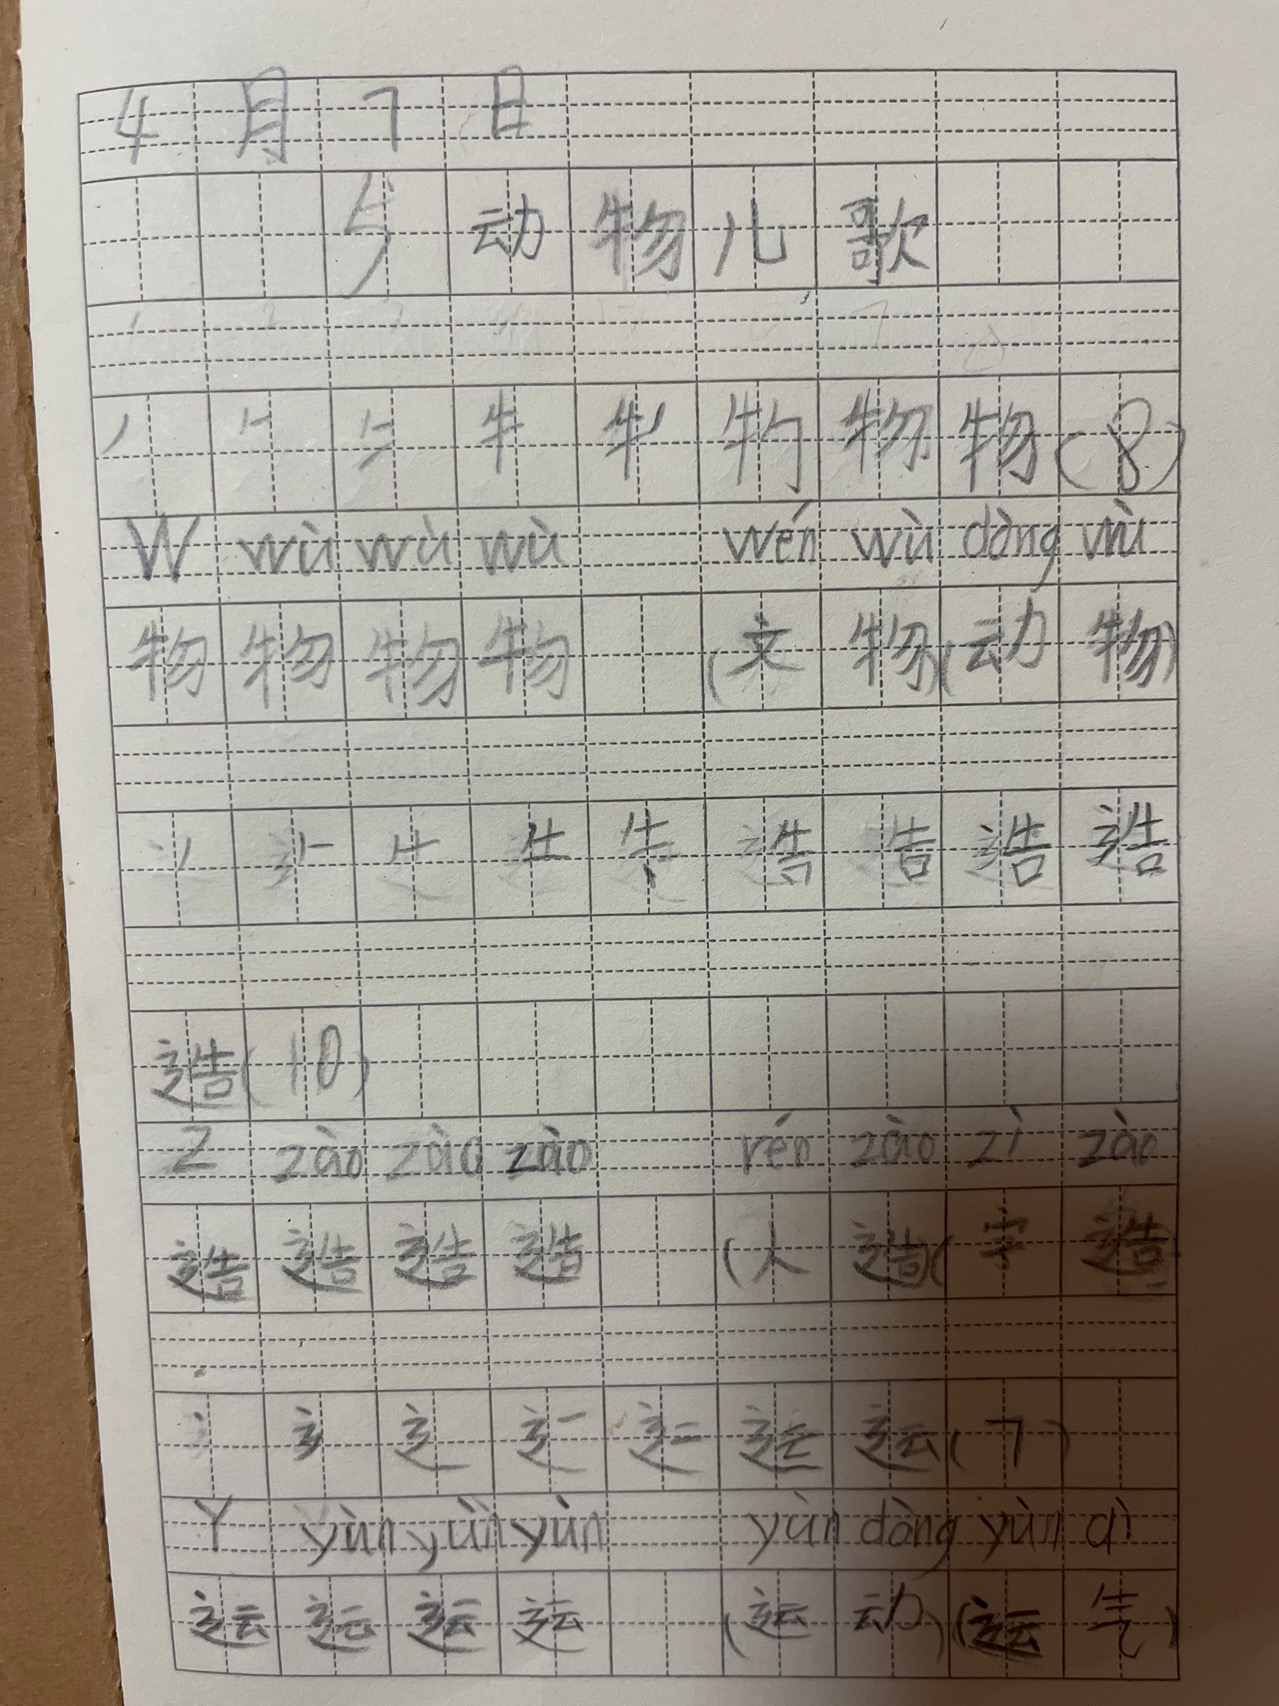 4月7日
5动物儿歌
物物(8)
W wù wù wù wén wù dòng wù
物物物物(文物)(动物)
造(10)
Z zào zào zào rén zào zì zào
造造造造(人造)(字造
运(7)
Y yùn yùn yùn yùn dòng yùn qì
运运运运(运动)(运气)